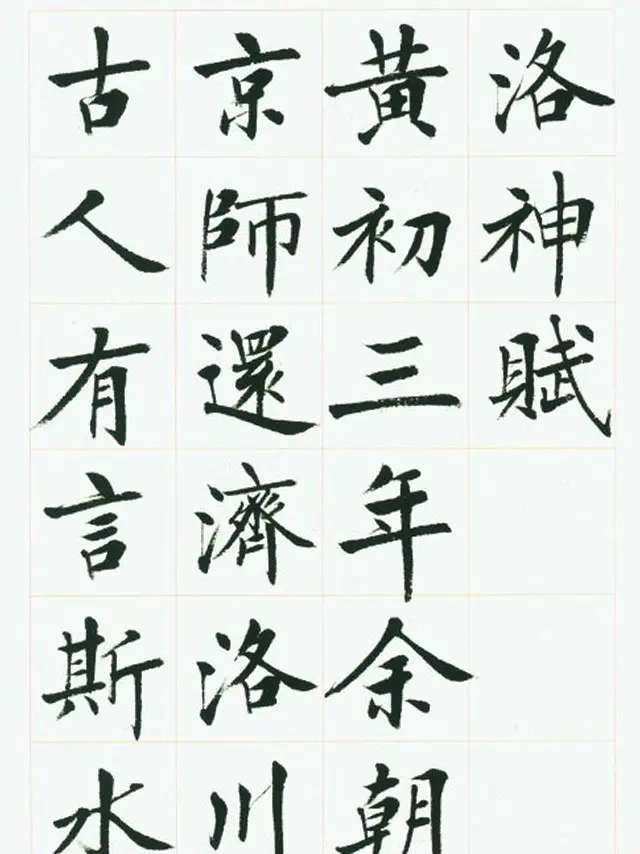 洛神賦
黃初三年余朝
京師還濟洛川
古人有言斯水